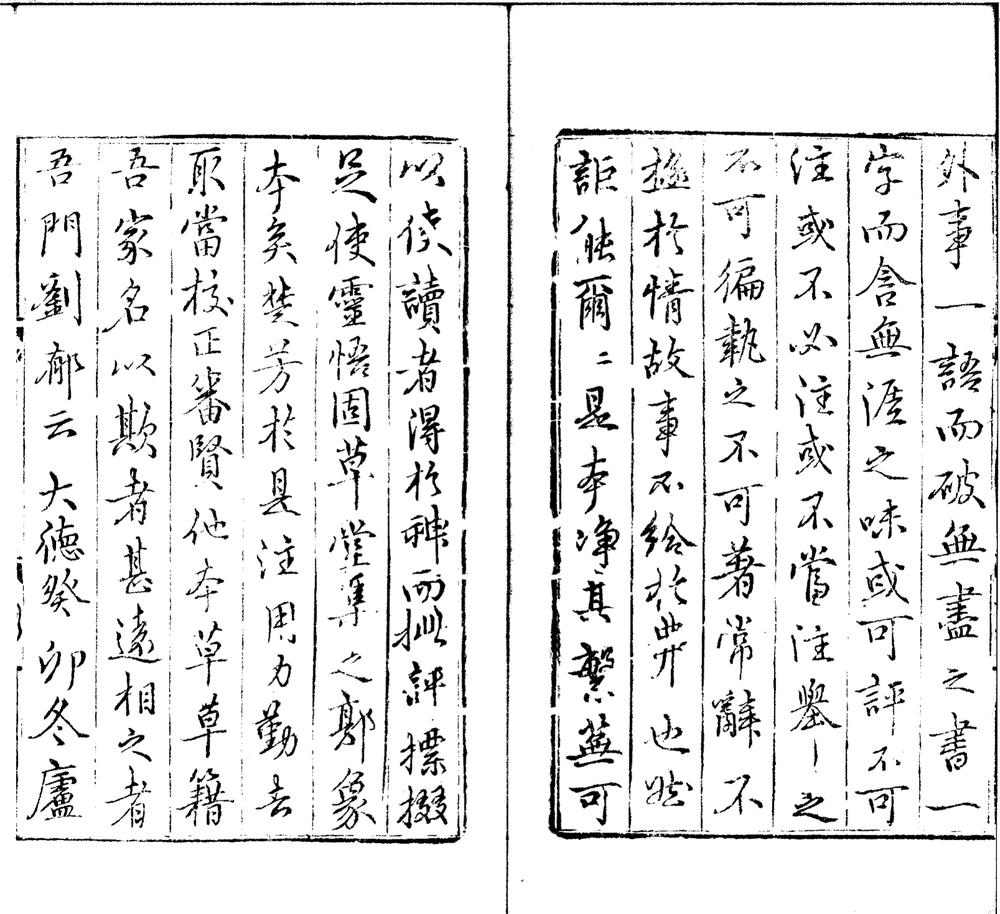 外事一語而破無盡之書一
字而含無涯之味或可評不可
注或不必注或不當注舉〻之
不可偏執之不可著常辭不
極於情故事不給於弊也然
詎能爾〻是本淨其繁蕪可
以使讀者得於神而批評摽掇
足使靈悟固草堂集之郭象
本矣楚芳於是注用力勤去
取當校正審賢他本草草籍
吾家名以欺者甚遠相之者
吾門劉郁云大德癸卯冬廬